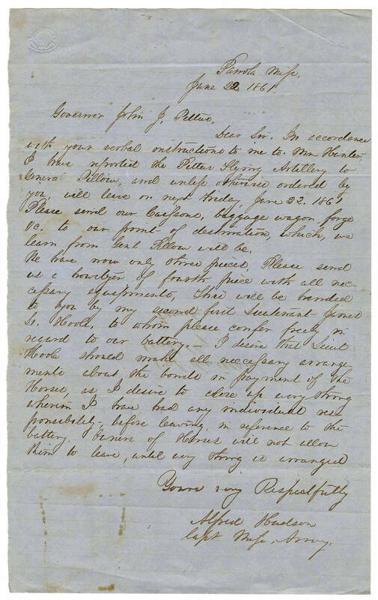 Panola Miss,
June 20. 1861
Governor John J. Pettus,
Dear Sir. In accordance
with your verbal instructions to me to
I have reported the Pettus Flying Artillery to
General Pillow, and unless otherwise ordered by
you, will leave on next Friday, June 22. 1861
Please send our Caissons, baggage wagon, forge
&c. to our point of destination, which, we
learn from Genl Pillow will be.
We have now only three pieces. Please send
us a howitzer of fourth piece with all ne-
cessary equipments, This will be handed
to you by my second first Lieutenant James
L. Hoole, to whom please confer freely in
regard to our battery. I desire that Lieut
Hoole should make all necessary arrange-
ments about the bonds in payment of the
Horses, as I desire to close up every thing
wherein I have had any individual res-
ponsibility, before leaving, in reference to the
battery. Owners of Horses will not allow
them to leave, until every thing is arranged
Yours very Respectfully
Alfred Hudson
Capt Miss. Army.